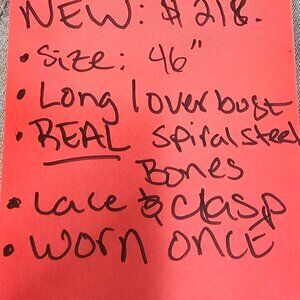 NEW: $218.
• Size: 46"
• Long / overbust
• REAL spiral steel
Bones
• Lace & Clasp
• WORN ONCE